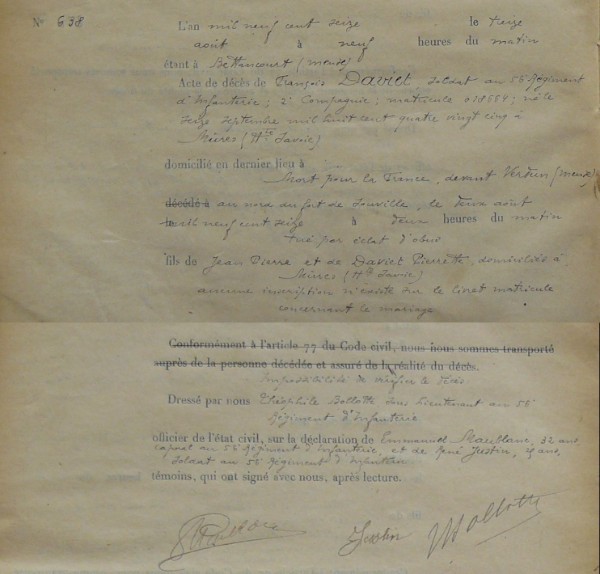 N° 638
L'an mil neuf cent seize le treize
août à neuf heures du matin
étant à Bettancourt (Meuse)
Acte de décès de François Daviet, soldat au 56 Régiment
d'Infanterie ; 2e Compagnie ; matricule 018559 ; né le
seize septembre mil huit cent quatre vingt cinq à
Mûres (Hte Savoie)
domicilié en dernier lieu à
Mort pour la France, devant Verdun (Meuse)
décédé à au nord du fort de Souville, le deux août
le mil neuf cent seize à deux heures du matin
tué par éclat d'obus
fils de Jean Pierre et de Daviet Pierrette, domiciliés à
Mûres (Hte Savoie)
aucune inscription n'existe sur le livret matricule
concernant le mariage
Conformément à l'article 77 du Code civil, nous nous sommes transporté
auprès de la personne décédée et assuré de la réalité du décès.
Impossibilité de vérifier le décès
Dressé par nous Théophile Bollotte Sous Lieutenant au 56
Régiment d'Infanterie
officier de l'état civil, sur la déclaration de Emmanuel Maublanc, 32 ans,
caporal au 56 Régiment d'Infanterie, et de René Justin, ans,
soldat au 56 Régiment d'Infanterie
témoins, qui ont signé avec nous, après lecture.
Justin